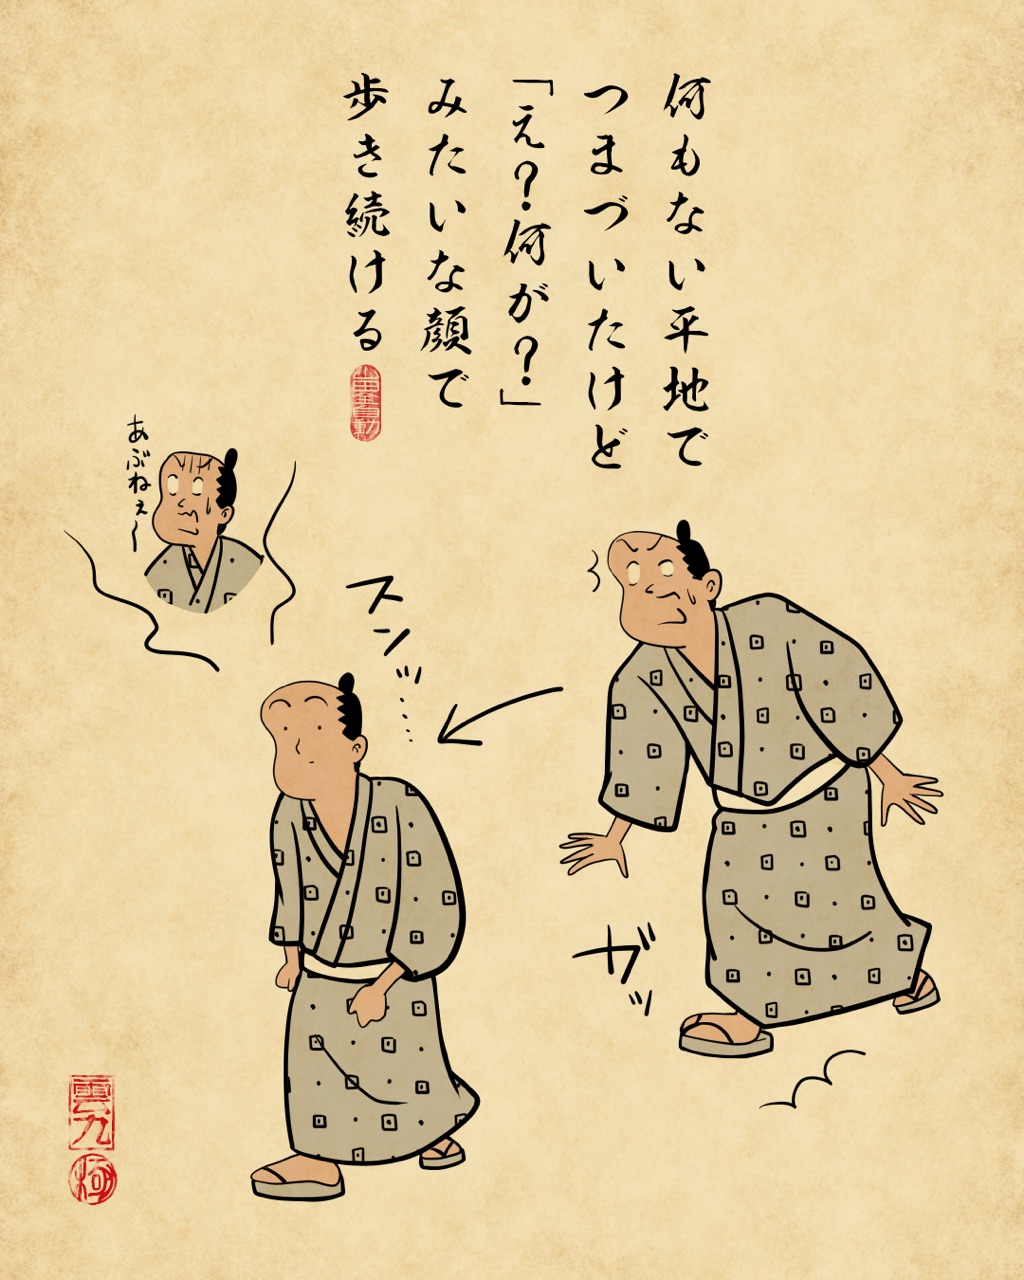 何もない平地で
つまづいたけど
「え？何が？」
みたいな顔で
歩き続ける
ガッ
スンッ…
あぶねぇ〜